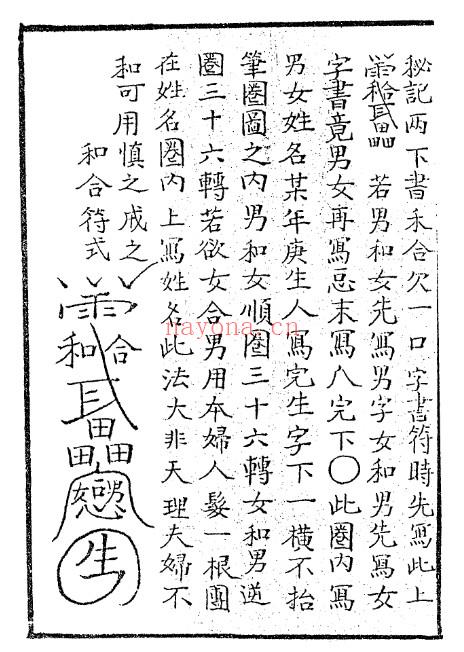 秘記两下書禾合欠一口字書符時先寫此上
若男和女先寫男字女和男先寫女
字書竟男女再寫忌末寫八完下〇此圈内寫
男女姓名某年庚生人寫完生字下一橫不抬
筆圈圖之内男和女順圈三十六轉女和男逆
圈三十六轉若欲女合男用本婦人髮一根團
在姓名圈内上寫姓名此法大非天理夫婦不
和可用慎之戒之
和合符式
合
和
田
田田
女 男
生
nayona.cn